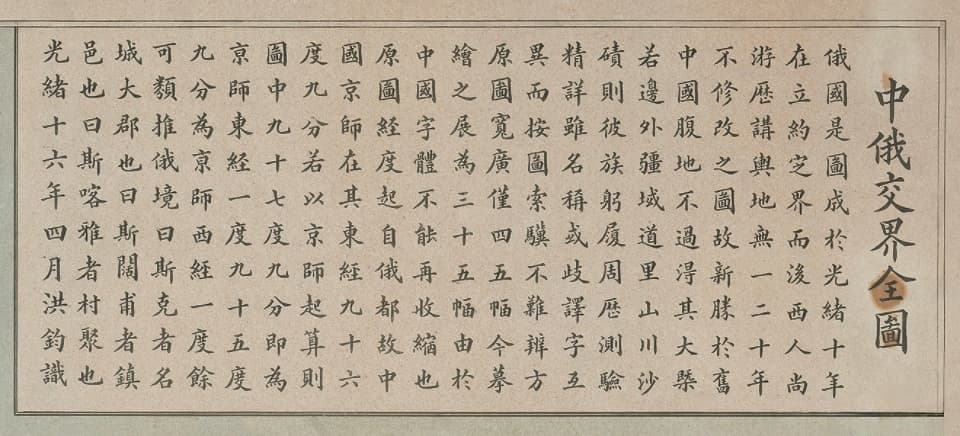 中俄交界全圖
俄國是圖成於光緒十年
在立約定界而後西人尚
游歷講輿地無一二十年
不修改之圖故新勝於舊
中國腹地不過得其大槩
若邊外疆域道里山川沙
磧則彼族躬履周歷測驗
精詳雖名稱或歧譯字互
異而按圖索驥不難辨方
原圖寬廣僅四五幅今摹
繪之展為三十五幅由於
中國字體不能再收縮也
原圖經度起自俄都故中
國京師在其東經九十六
度九分若以京師起算則
圖中九十七度九分即為
京師東經一度九十五度
九分為京師西經一度餘
可類推俄境曰斯克者名
城大郡也曰斯闊甫者鎮
邑也曰斯喀雅者村聚也
光緒十六年四月洪鈞識